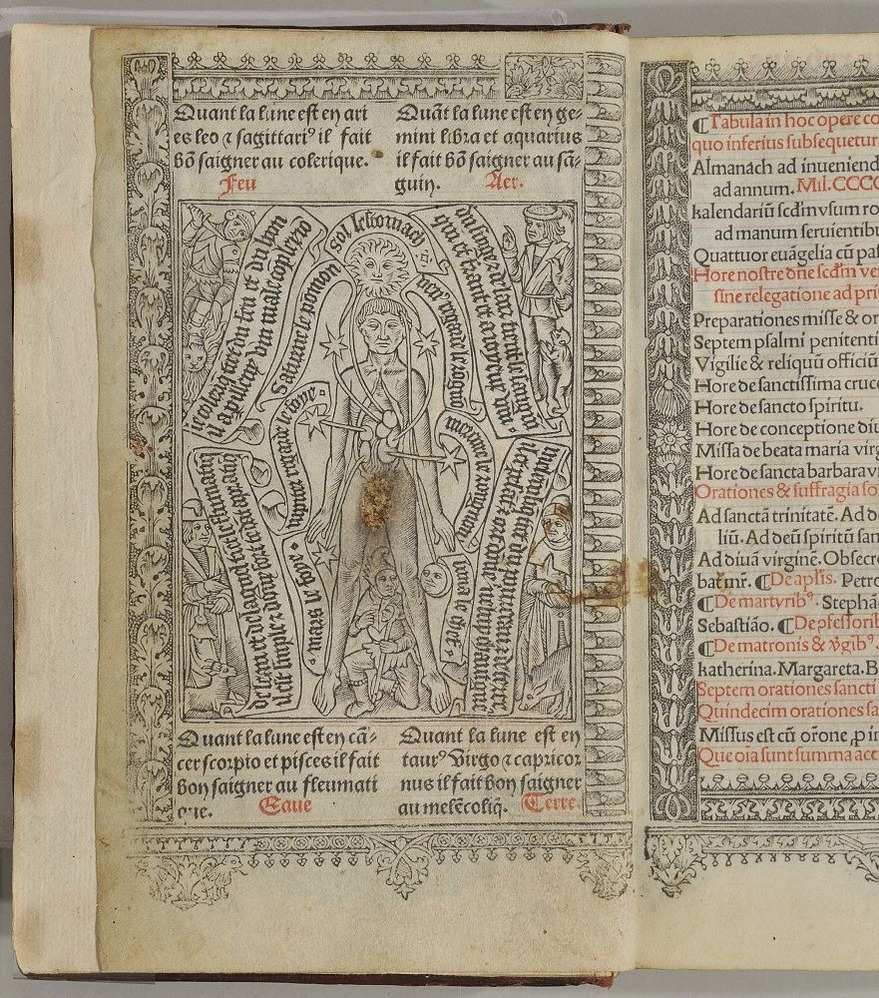 Quant la lune est en ari
es leo ⁊ sagittariꝰ il fait
bõ saigner au colerique.
Feu
Quãt la lune est en ge-
mini libra et aquarius
il fait bõ saigner au sã-
guin. Aer.
sol lestomach
Saturne le pomon
ven9 regarde le rogn
iupiter regarde le foye
mercure le rongnon
mars le
luna le chef
Quant la lune est en cã-
cer scorpio et pisces il fait
bon saigner au fleumati
que. Eaue
Quant la lune est en
taurꝰ Virgo ⁊ capricor
nus il fait bon saigner
au melẽcoliq̃. Terre.
¶Tabula in hoc opere co
quo inferius subsequetur
Almanach ad inueniend
ad annum. Mil. CCCC
kalendariũ scdm vsum ro
ad manum seruientibu
Quattuor euãgelia cũ pas
Hore nostre dñe scdm ve
sine relegatione ad pri
Preparationes misse & or
Septem psalmi penitenti
Vigilie & reliquũ officiũ
Hore de sanctissima cruce
Hore de sancto spiritu.
Hore de conceptione diu
Missa de beata maria virg
Hore de sancta barbara vi
Orationes & suffragia so
Ad sanctã trinitatẽ. Ad de
liũ. Ad deũ spiritũ san
Ad diuã virginẽ. Obsecro
bar̃mr̃. ¶De apl̃is. Petro
¶De martyribꝰ. Stephã
Sebastião. ¶De p̃fessorib
¶De matronis & v̾gibꝰ.
katherina. Margareta. B
Septem orationes sancti
Quindecim orationes sa
Missus est cũ or̃one, p in
Que oĩa sunt summa acc